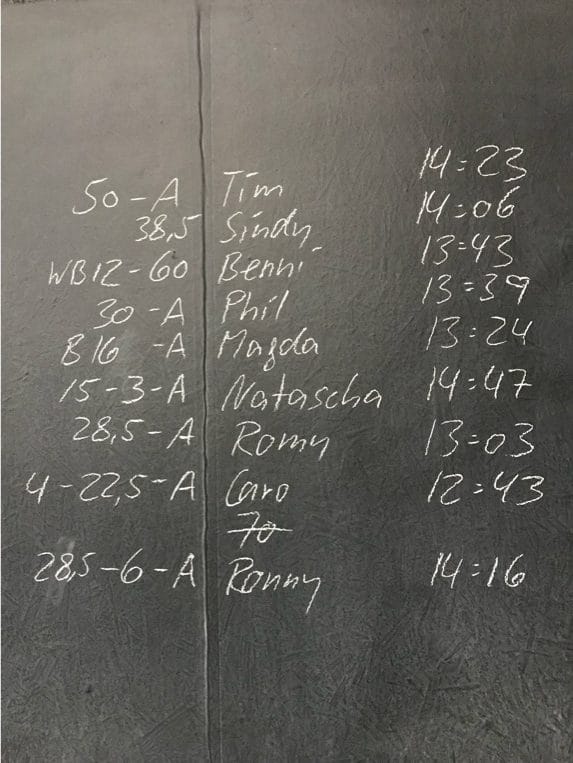 50-A Tim 14:23
38,5 Sindy 14:06
WB12-60 Benni 13:43
30-A Phil 13:39
B16-A Magda 13:24
15-3-A Natascha 14:47
28,5-A Romy 13:03
4-22,5-A Caro 12:43
70
28,5-6-A Ronny 14:16